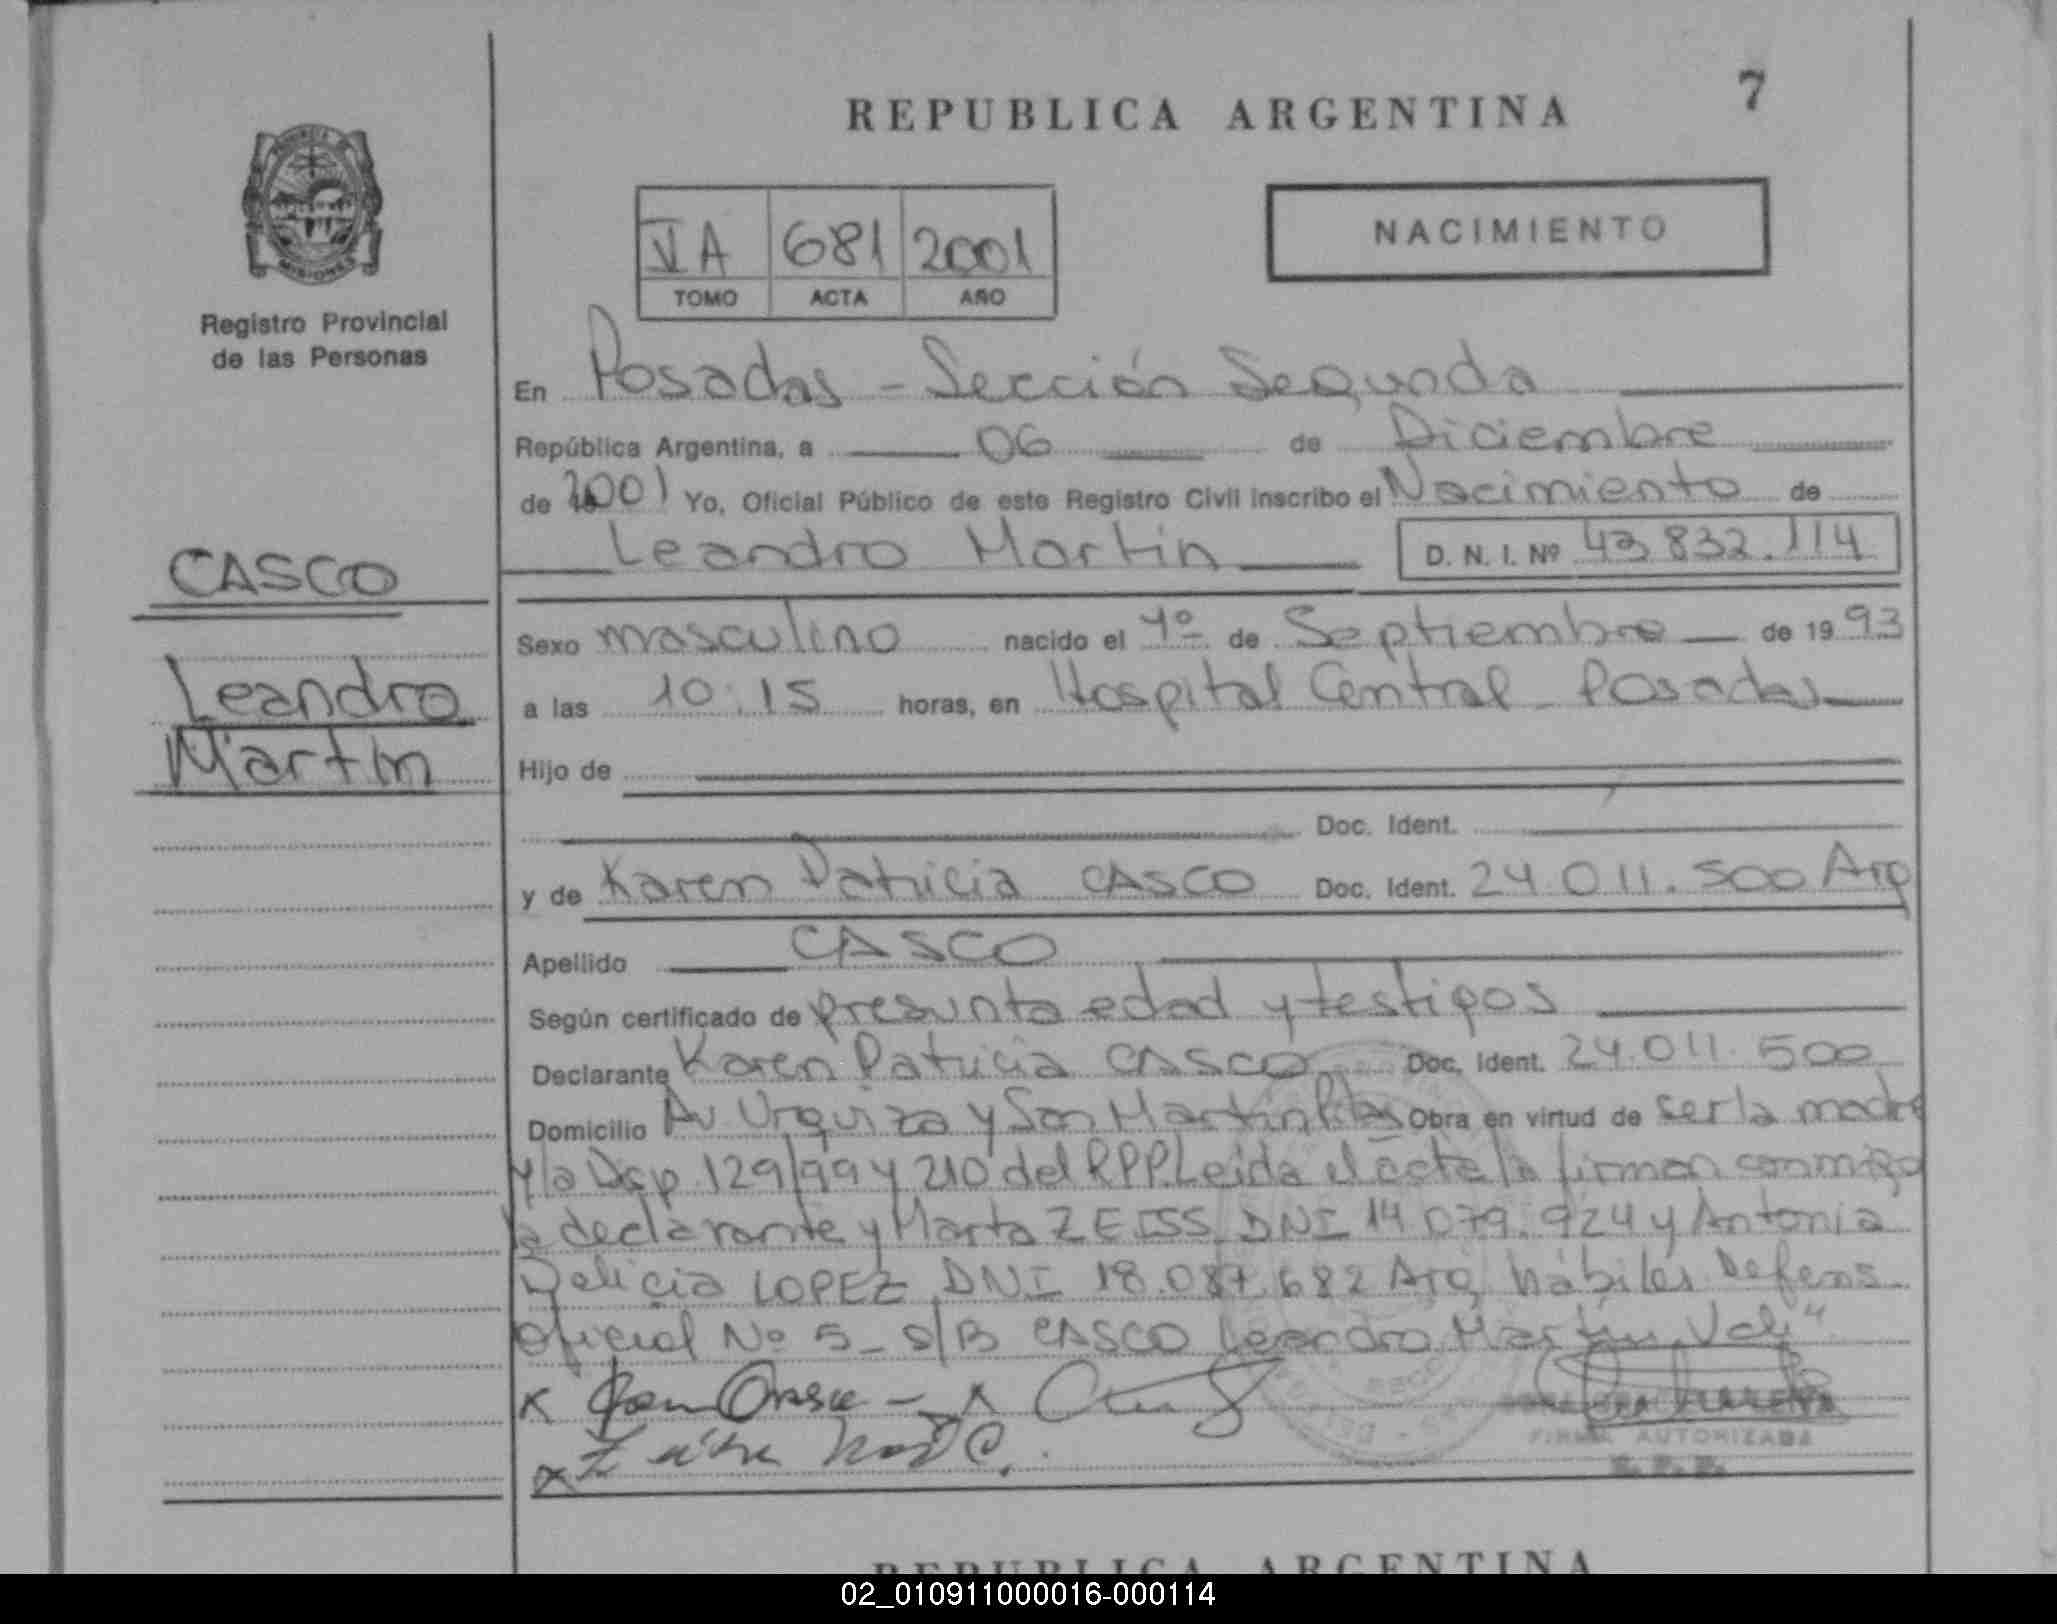 REPUBLICA ARGENTINA
7
MISIONES
Registro Provincial
de las Personas
VA 681 2001
TOMO ACTA AÑO
NACIMIENTO
En Posadas - Sección Segunda
República Argentina, a 06 de Diciembre
de 2001 Yo, Oficial Público de este Registro Civil inscribo el Nacimiento de
Leandro Martin D. N. I. Nº 43 832.114
CASCO
Leandro
Martin
Sexo masculino nacido el 1º de Septiembre de 19 93
a las 10:15 horas, en Hospital Central - Posadas
Hijo de
Doc. Ident.
y de Karen Patricia CASCO Doc. Ident. 24.011.500 Arg
Apellido CASCO
Según certificado de presunta edad y testigos
Declarante Karen Patricia CASCO Doc. Ident. 24.011.500
Domicilio Av Urquiza y San Martin Pdas Obra en virtud de ser la madre
y la Dsp. 129/99 y 210 del RPP. Leida el acta la firman conmigo
la declarante y Marta ZEISS DNI 14.079.924 y Antonia
Delicia LOPEZ DNI 18.087.682 Arg hábiles Defens
Oficial No 5 - s/B CASCO Leandro Martin
FIRMA AUTORIZADA
R. P. P.
REPUBLICA ARGENTINA
02_010911000016-000114